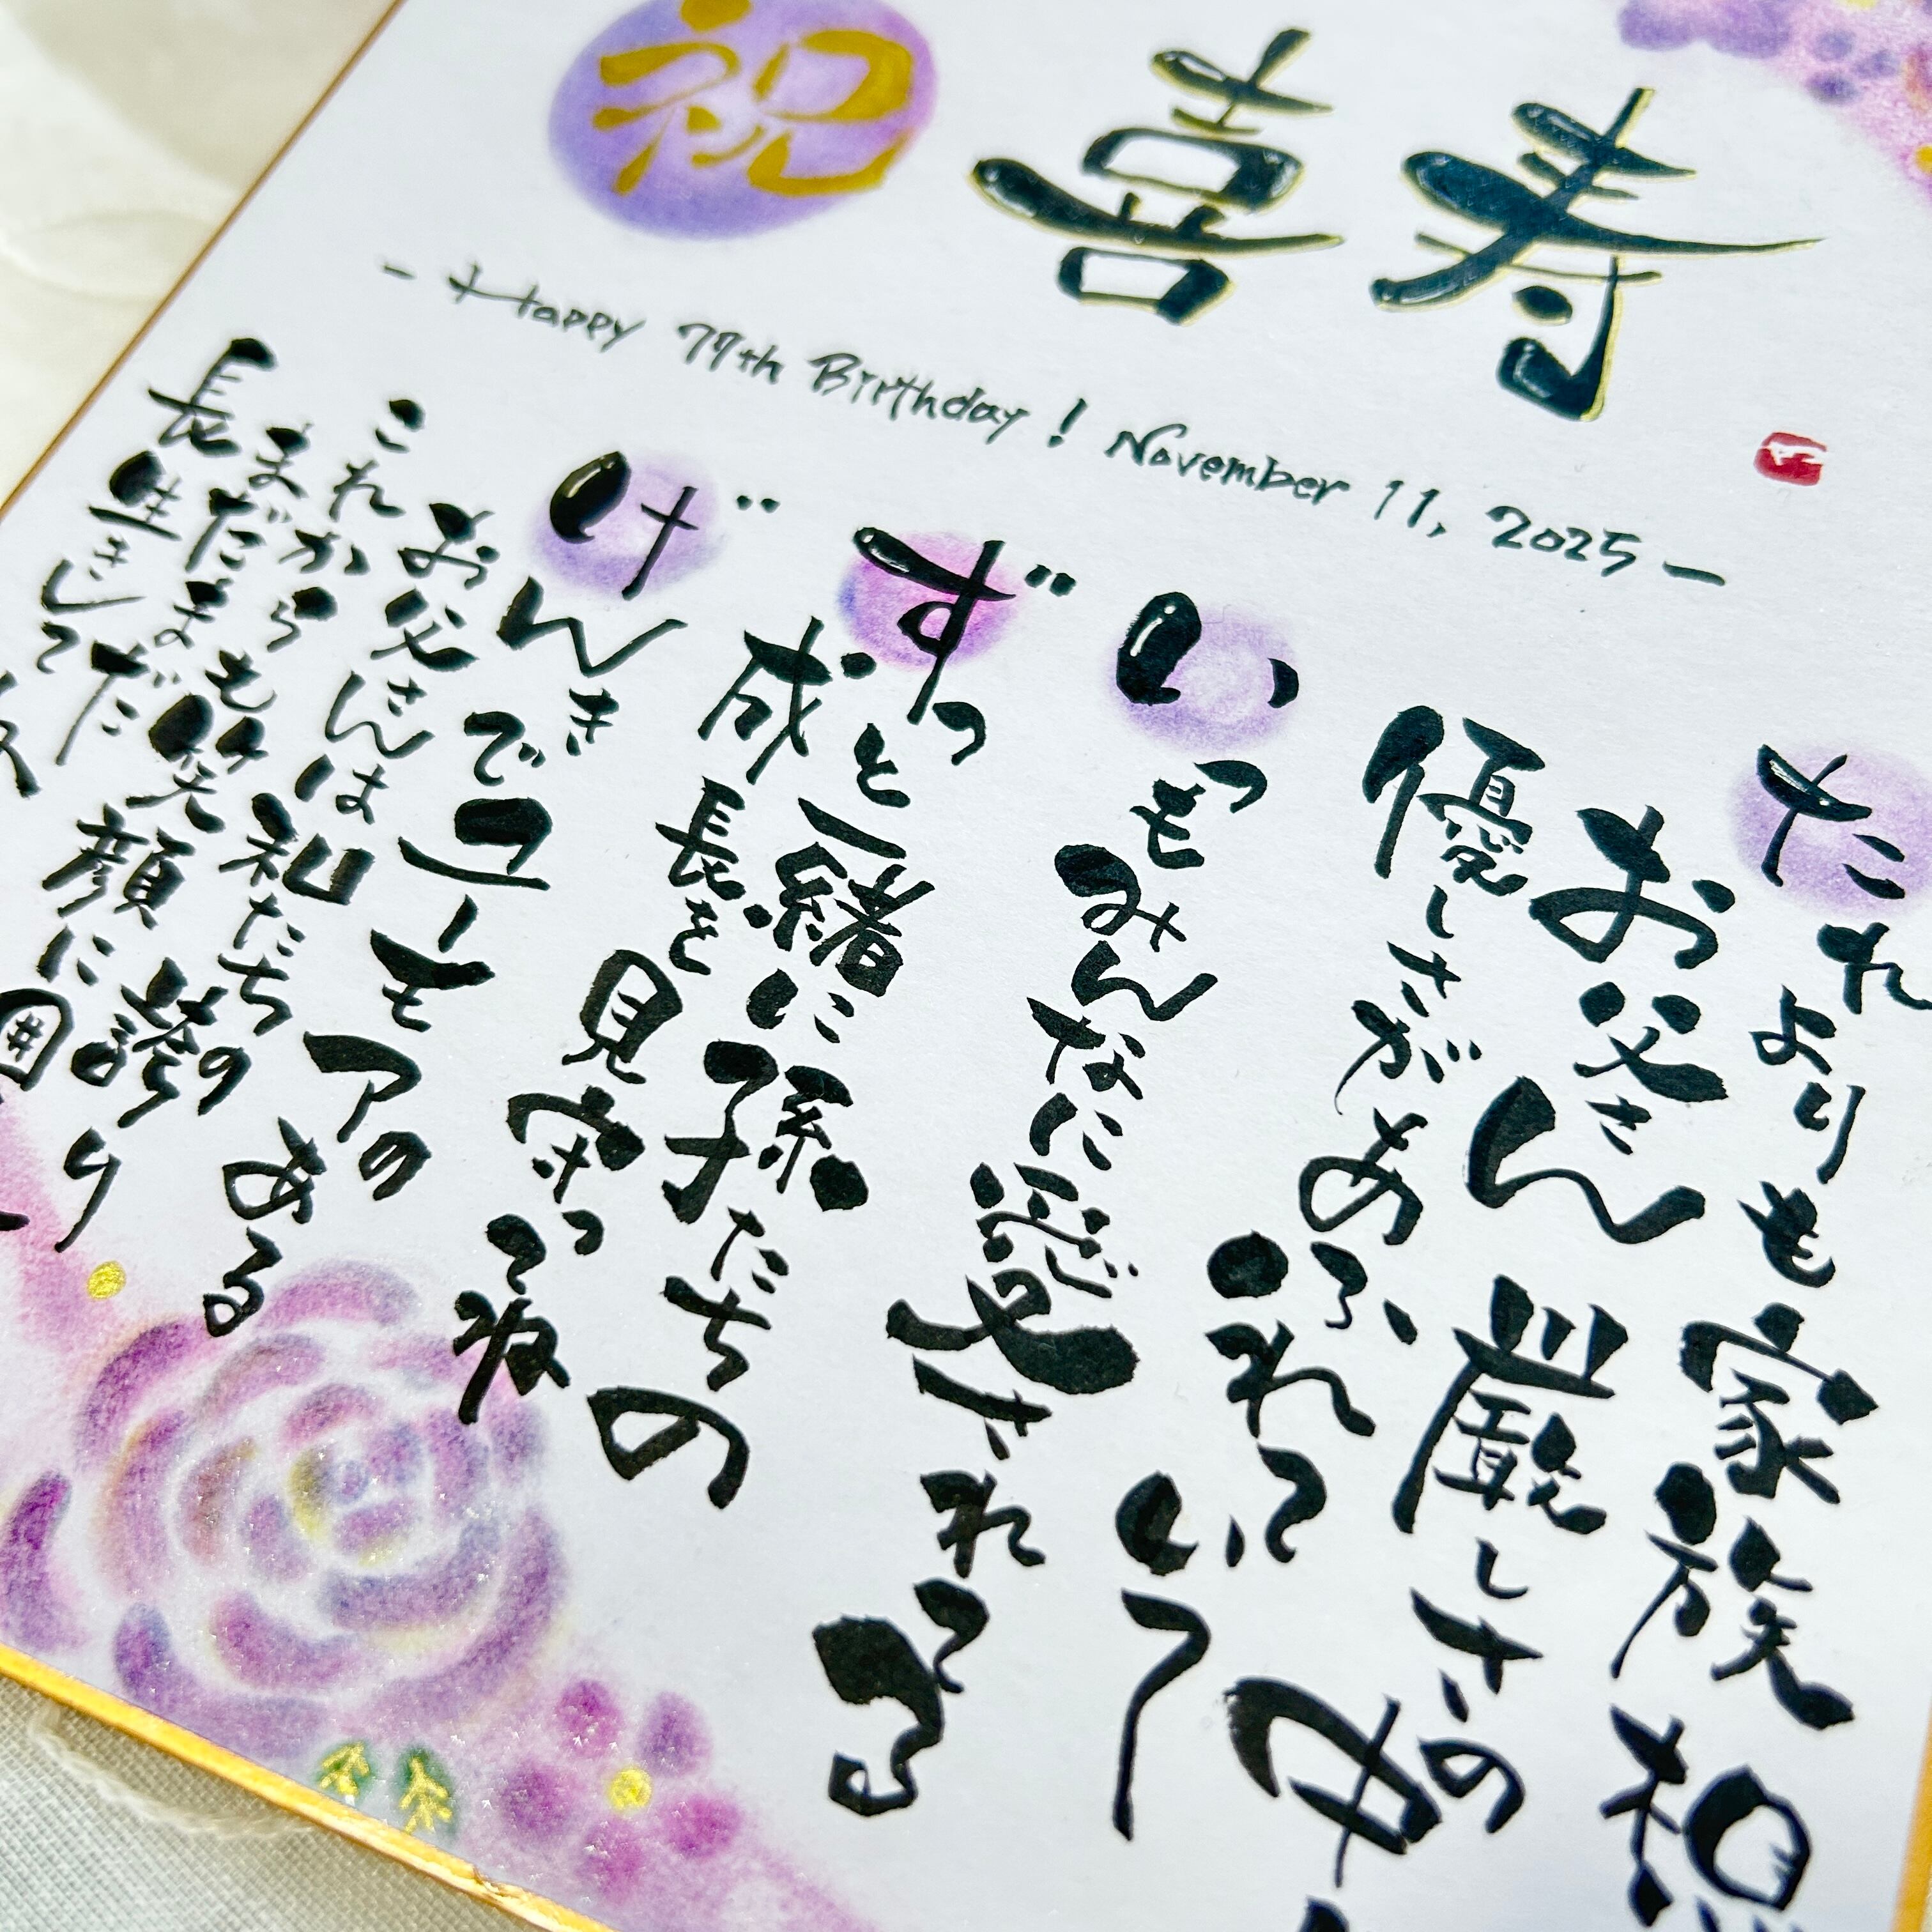 祝 喜寿
- Happy 77th Birthday! November 11, 2025 -
たれよりも家族想
お父さん 厳しさの中
優しさがあふれていて
いつもみんなに愛されてる
ずっと一緒に孫たちの
成長を見守ってね
げんきでユーモアのある
お父さんは私たちの誇り
これからも笑顔に囲
まだまだ
長生きして